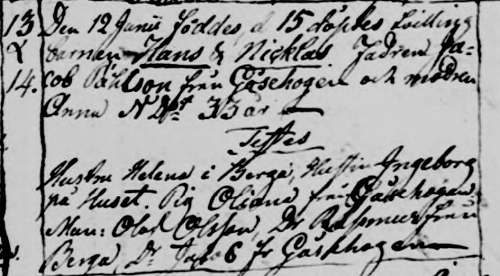 13 Den 12 Junii föddes, d 15 döptes tvilling
& barnen Hans & Nicklas Fadren Ja-
14. cob Påhlson från Gåsehogen och modren
Anna N Dott 33 år
Testes
Hustru Helena i Berga, Hustru Ingeborg
på Huset. Pig Oliana från Gåsehogen
Man: Olod Olsson, Dr Rasmus från
Berga, Dr Jacob fr Gåsehogen